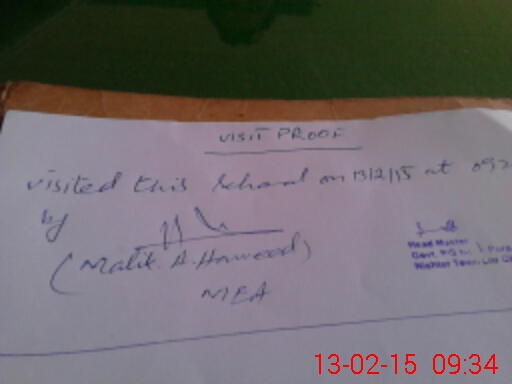 VISIT PROOF
visited this school on 13/2/15 at
by
(Malik. A. Hameed)
MEA
Head Master
Govt. P/S
13-02-15 09:34